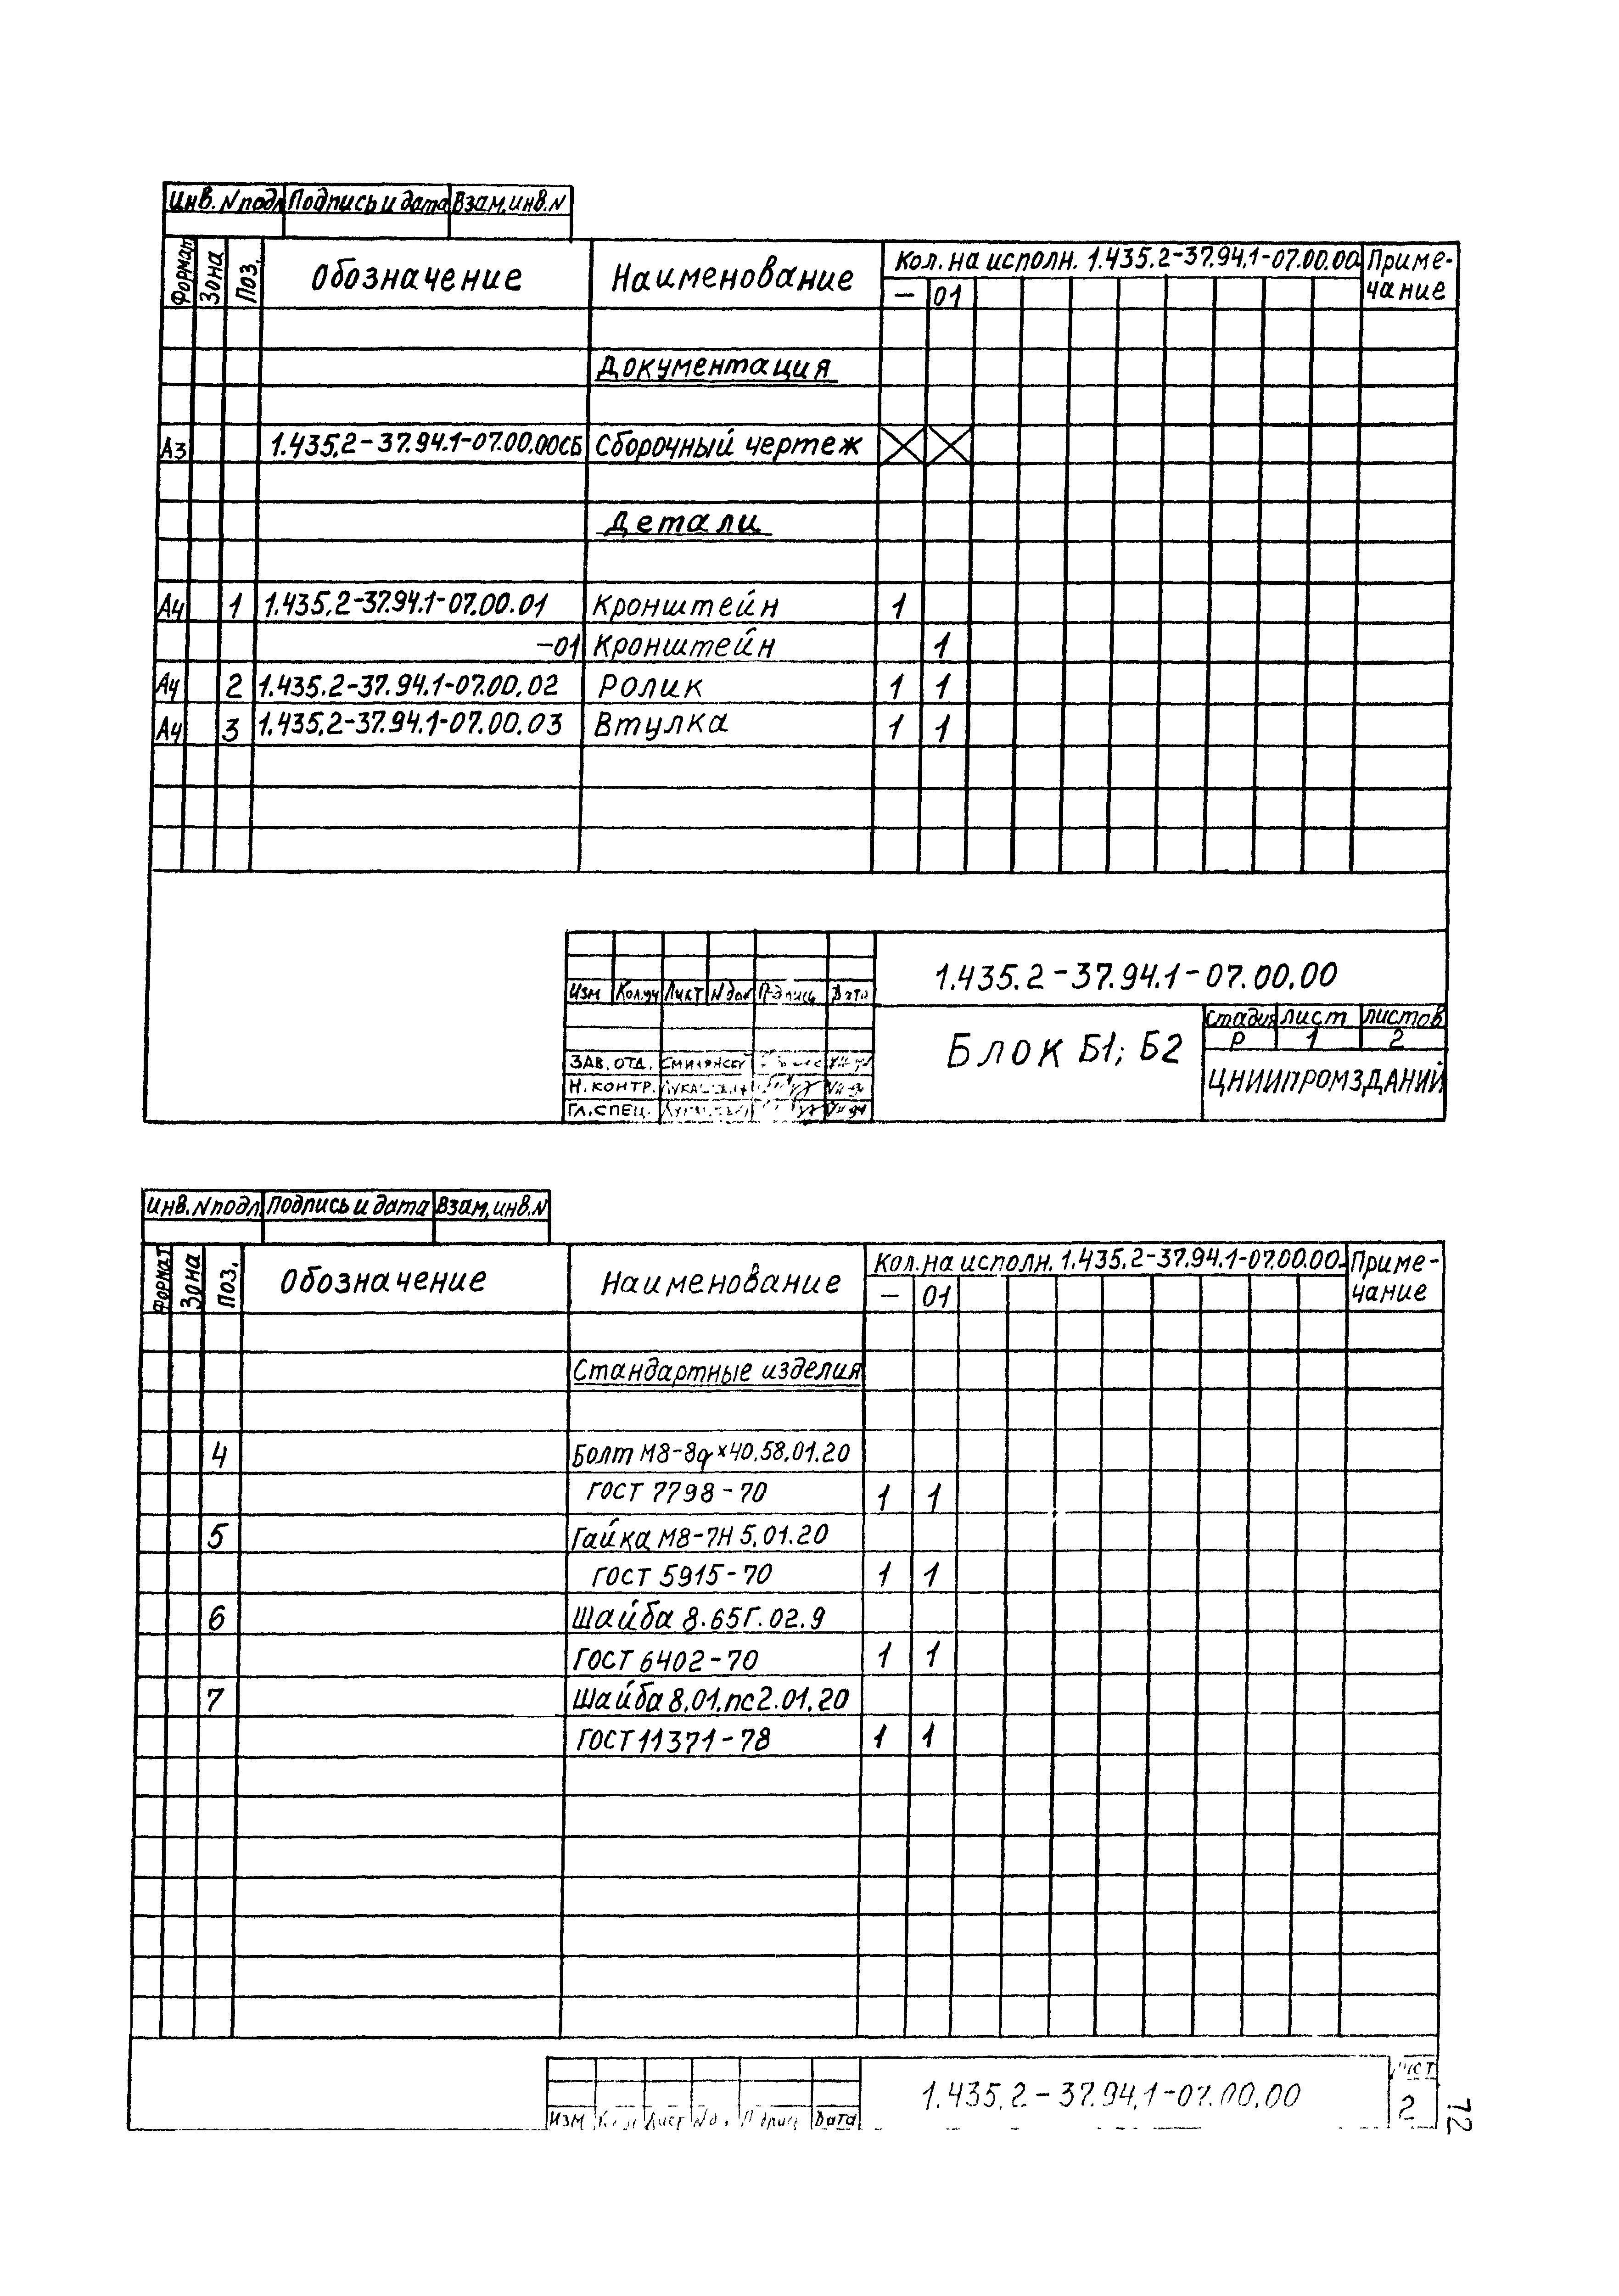 Инв. N подл Подпись и дата Взам. инв. N
Формат Зона Поз. Обозначение Наименование Кол. на исполн. 1.435.2-37.94.1-07.00.00 Приме-
— 01 чание
Документация
А3 1.435.2-37.94.1-07.00.00СБ Сборочный чертеж
Детали
А4 1 1.435.2-37.94.1-07.00.01 Кронштейн 1
-01 Кронштейн 1
А4 2 1.435.2-37.94.1-07.00.02 Ролик 1 1
А4 3 1.435.2-37.94.1-07.00.03 Втулка 1 1
1.435.2-37.94.1-07.00.00
Изм Кол.уч Лист N док Подпись Дата
Блок Б1; Б2
Стадия Лист Листов
Р 1 2
ЗАВ. ОТД.
Н. КОНТР.
ГЛ. СПЕЦ.
ЦНИИПРОМЗДАНИЙ
Инв. N подл. Подпись и дата Взам. инв. N
Формат Зона Поз. Обозначение Наименование Кол. на исполн. 1.435.2-37.94.1-07.00.00- Приме-
— 01 чание
Стандартные изделия
4 Болт М8-8g×40.58.01.20
ГОСТ 7798-70 1 1
5 Гайка М8-7Н 5.01.20
ГОСТ 5915-70 1 1
6 Шайба 8.65Г.02.9
ГОСТ 6402-70 1 1
7 Шайба 8.01.пс2.01.20
ГОСТ 11371-78 1 1
1.435.2-37.94.1-07.00.00
Лист
2
Изм Лист Дата
72